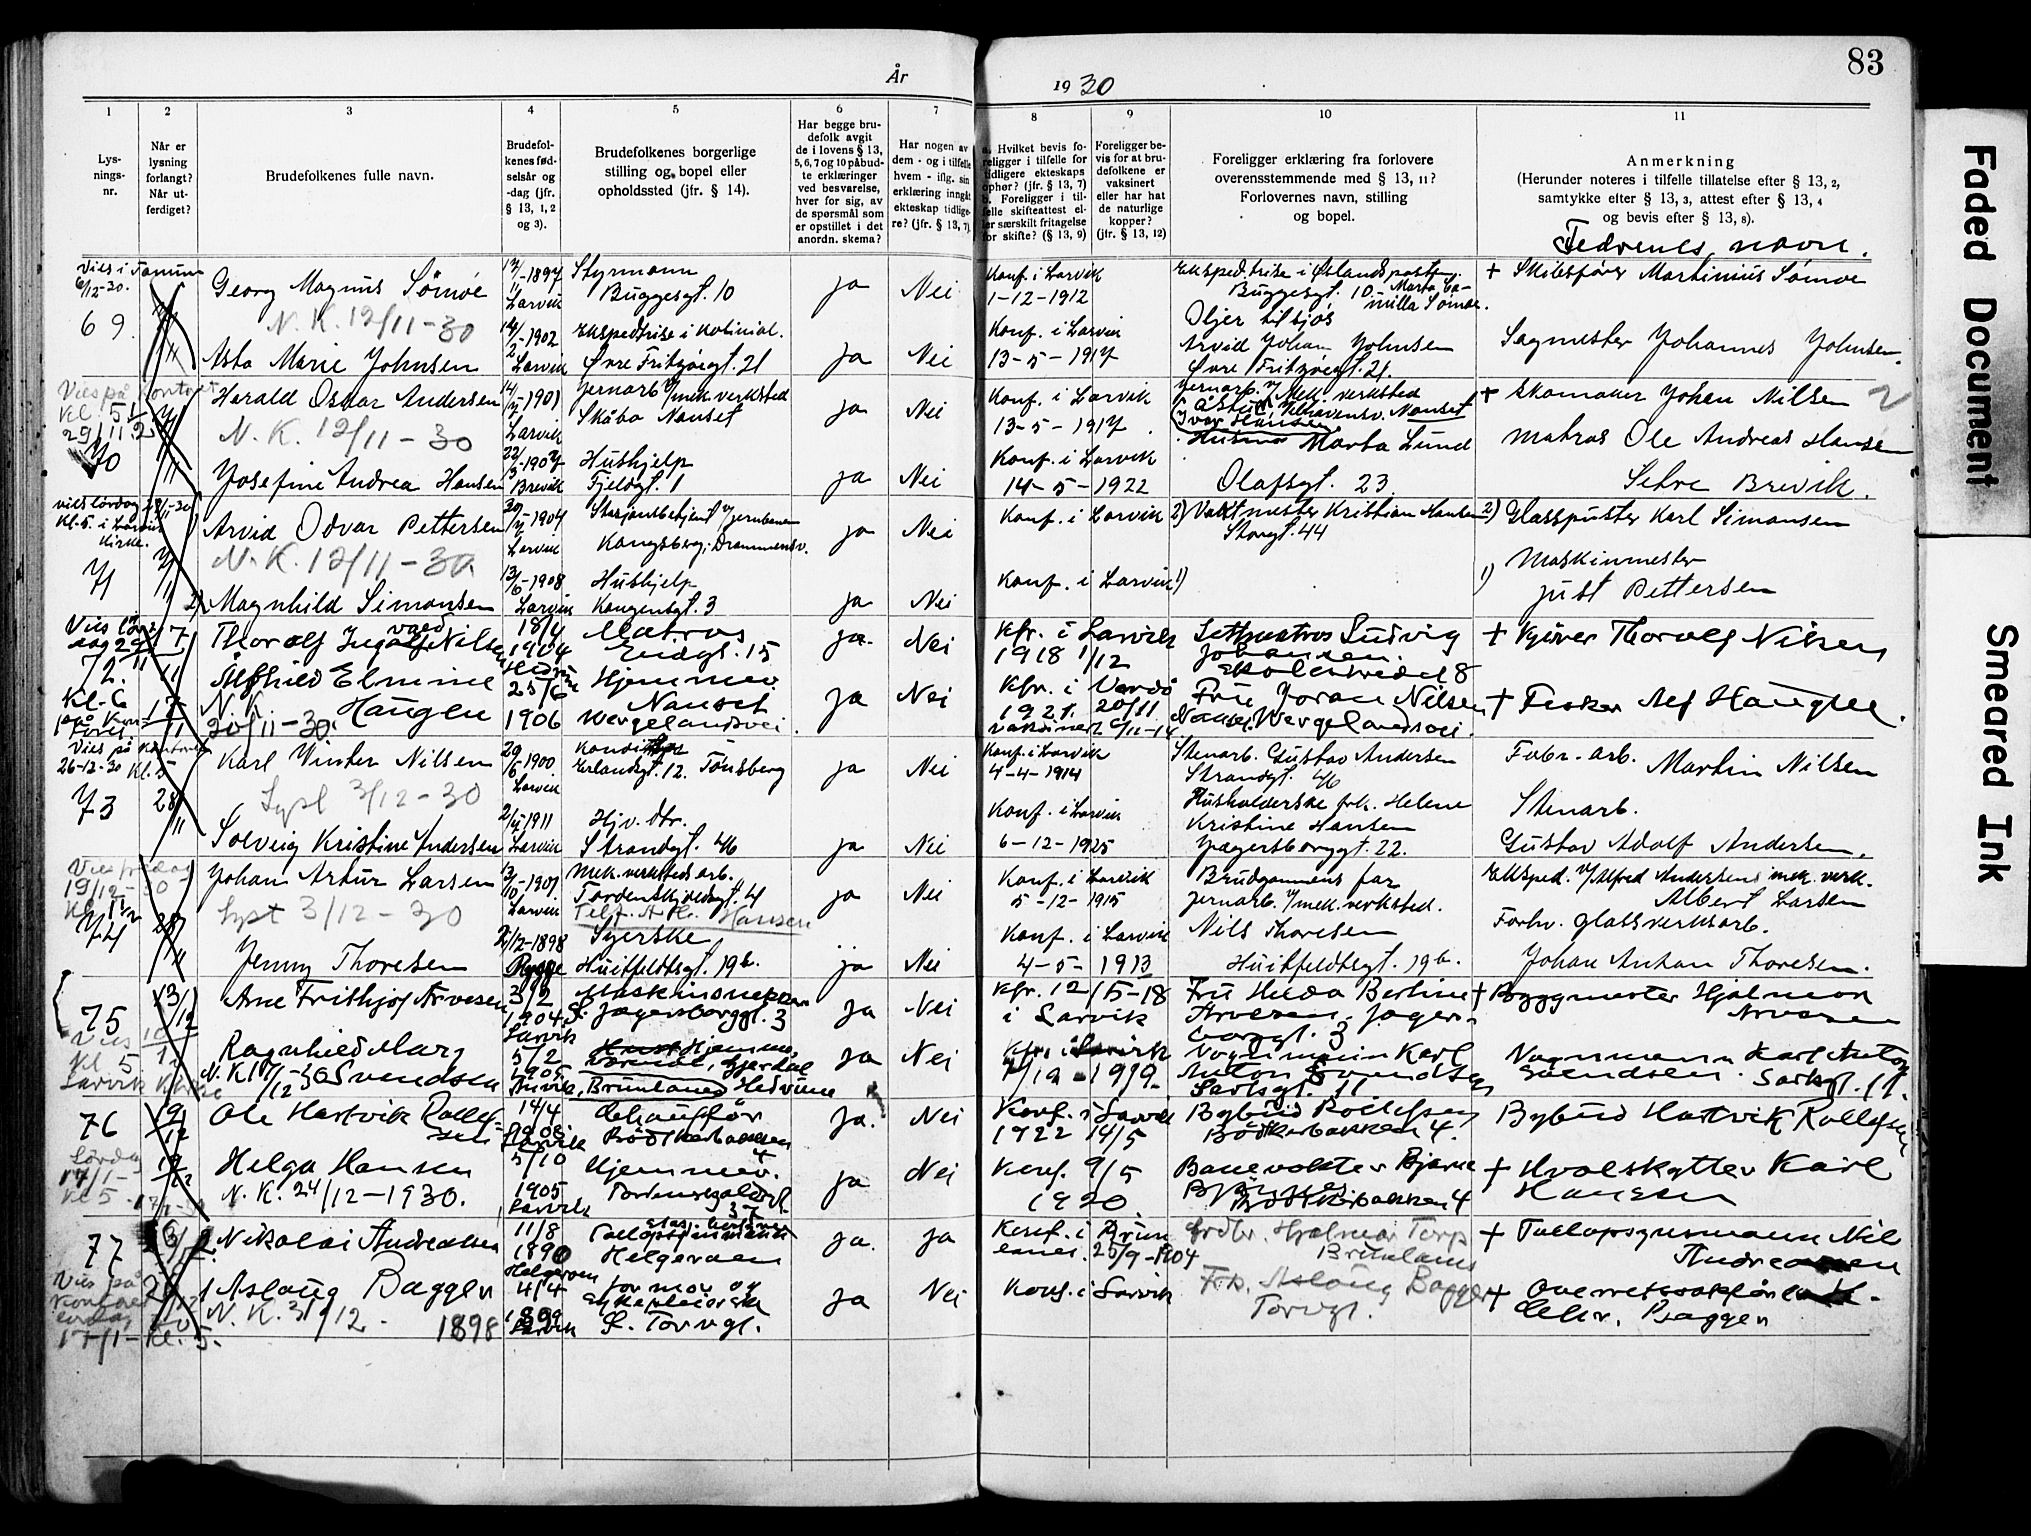 År
19 30
83
1
2
3
4
5
6
7
8
9
10
11
Lys-
nings-
nr.
Når er
lysning
forlangt?
Når ut-
ferdiget?
Brudefolkenes fulle navn.
Brudefol-
kenes fød-
selsår og
-dag (jfr.
§ 13, 1, 2
og 3).
Brudefolkenes borgerlige
stilling og bopel eller
opholdssted (jfr. § 14).
Har begge bru-
defolk avgit
de i lovens § 13,
5, 6, 7 og 10 påbud-
te erklæringer
ved besvarelse,
hver for sig, av
de spørsmål som
er opstillet i det
anordn. skema?
Har nogen av
dem - og i tilfelle
hvem - iflg. sin
erklæring inngåt
ekteskap tidlige-
re? (jfr. § 13, 7)
a. Hvilket bevis fo-
religger i tilfelle for
tidligere ekteskaps
ophør? (jfr. § 13, 7)
b. Foreligger i til-
felle skifteattest el-
ler særskilt fritagelse
for skifte? (§ 13, 9)
Foreligger be-
vis for at bru-
defolkene er
vaksinert
eller har hat
de naturlige
kopper?
(jfr. § 13, 12)
Foreligger erklæring fra forlovere
overensstemmende med § 13, 11?
Forlovernes navn, stilling
og bopel.
Anmerkning
(Herunder noteres i tilfelle tillatelse efter § 13, 2,
samtykke efter § 13, 3, attest efter § 13, 4
og bevis efter § 13, 8).
Fedrenes navn.
Vies i
6/12-30.
69.
Georg Magnus Sömöe
N.K. 12/11-30
Asta Marie Johnsen
1897
Larvik
1902
Larvik
Styrmann
Buggesgt. 10
Ekspeditrise i kolonial.
Øvre Fritzøegt. 21
ja Nei
ja Nei
Konf. i Larvik
1-12-1912
Konf. i Larvik
13-5-1917
Ekspeditrise i Østlandsposten
Buggesgt. 10 - Marta Ca-
milla Sömöe.
Arvid Johan Johnsen
Øvre Fritzøegt. 21.
+ Skibsfører Martinius Sömöe
Sagmester Johannes Johnsen.
Vies på kontoret
Kl. 5½
29/11
70
Harald Oskar Andersen
N.K. 12/11-30
Josefine Andrea Hansen
1901
Larvik
22/3-1907
Brevik
Jernarb v/mek. verksted
Skåba Nanset
Hushjelp
Fjeldgt. 1
ja Nei
ja Nei
Konf. i Larvik
13-5-1917.
Konf. i Larvik
14-5-1922
Jernarb. v/ Mek. verksted
Ivar Hansen
Nanset
Marta Lund
Olafsgt. 23
+ Skomaker Johan Nilsen
Matros Ole Andreas Hansen
Setre Brevik.
vies lördag
Kl. 5. i Larvik
Kirke.
71
Arvid Odvar Pettersen
N.K. 12/11-30
Magnhild Simonsen
1904
Larvik
13/6-1908
Larvik
Stasjonsbetjent v/jernbanen
Kongsberg, Drammensv.
Hushjelp
Kongensgt. 3
ja Nei
ja Nei
Konf. i Larvik
Konf. i Larvik 1)
2) Vaktmester Kristian Hansen
Storgt. 44
2) Glasspuster Karl Simonsen
1) Maskinmester
Just Pettersen
Vies lör-
dag 29/11
72.
Kl-6
Thorolf Ingvald Nilsen
Alfhild Elmine
Haugen
N.K.
20/11-30.
18/4
1904
25/6
1906
Matros
Endgt. 15
Hjemmev.
Nanset
Wergelandsvei.
ja. Nei
ja Nei
Kfr. i Larvik
1918 1/12
Kfr. i Vardö
1921. 20/11
Lettmatros Ludvig
Johansen.
Fru Joran Nilsen
Nanset. Wergelandsvei.
+ Kjører Thorolf Nilsen
+ Fisker Alf Haugen.
Vies på kontoret
26-12-30 Kl. 5
73
28/11
Karl Winter Nilsen
Lyst 3/12-30
Solveig Kristine Andersen
29/6-1900
Larvik
1911
Larvik
Konditor
Erlandsgt. 12. Tönsberg
Hjv. dtr.
Strandgt. 46
ja Nei
ja Nei
Konf. i Larvik
4-4-1914
Konf. i Larvik
6-12-1925
Stenarb. Gustav Andersen
Strandgt. 46
Husholderske frk. Helene
Kristine Hansen
Jægersborggt. 22.
Fabr. arb. Martin Nilsen
Stenarb.
Gustav Adolf Andersen.
Vies fredag
19/12-30
74
28/11
Johan Artur Larsen
Lyst 3/12-30
Jenny Thoresen
1901
Larvik
1898
Rygge
Mek. verksteds arb.
Tordenskjoldsgt. 4
Telf. A. H. Hansen
Syerske
Huitfeldtsgt. 19b.
ja Nei
ja Nei
Konf. i Larvik
5-12-1915
Konf. i Larvik
4-5-1913
Brudgommens far
Jernarb. v/mek. verksted.
Nils Thoresen
Huitfeldtsgt. 19b.
Eksped. v/Alfred Andersens mek. verk.
Albert Larsen
Forhv. glassverksarb.
Johan Anton Thoresen.
75
Vies
Kl 5
Larvik Kirke
13/12
Arne Frithjof Arvesen
Ragnhild Mary
Svendsen
3/2
1904
Larvik
5/2
1905
Maskinsnekker
Jægersborggt. 3
Hjemmev.
Brunlanes Hedrum
ja Nei
ja Nei
Kfr. 12/5-18
i Larvik
Fru Hilda Bertine
Arvesen. Jæger-
borggt. 3
Vognmann Karl
Anton Svendsen
+ Byggmester Hjalmar
Arvesen
Vognmann Karl Anton
Svendsen.
76
Lördag
17/1-
Kl 5
Ole Hartvik Rollef-
sen
Helga Hansen
N.K. 24/12-1930.
14/4
1908
Larvik
5/10
1905
Larvik
Chauffør
Bödkerbakken
4
Hjemmev.
37
ja. Nei
ja Nei
Konf. i Larvik
1922 14/5
Konf. 9/5
1920
Bybud Rollefsen
Bödkerbakken 4.
Banevokter Bjarne
Bödkerbakken 4
Bybud Hartvik Rollefsen
+ Hvalskytter Karl
Hansen
77
Vies på
kontoret
lördag
17/1-Kl. 5.
Nikolai Andreassen
Aslaug Bagger
N.K. 31/12. 1898
11/8
1890
Helgeroen
4/4
Larvik
Helgeroen
Sykepleierske
Torvgt.
ja. ja
ja Nei
Konf. i Brun-
lanes. 25/9-1904
Konf. i Larvik
Hjalmar Torp
Brunlanes
Frk. Aslaug Bagger
Torvgt.
+ Tollopsynsmann Nil
Andreassen
+ Overrettssakfører
Chr. Bagger
Faded Document
Smeared Ink